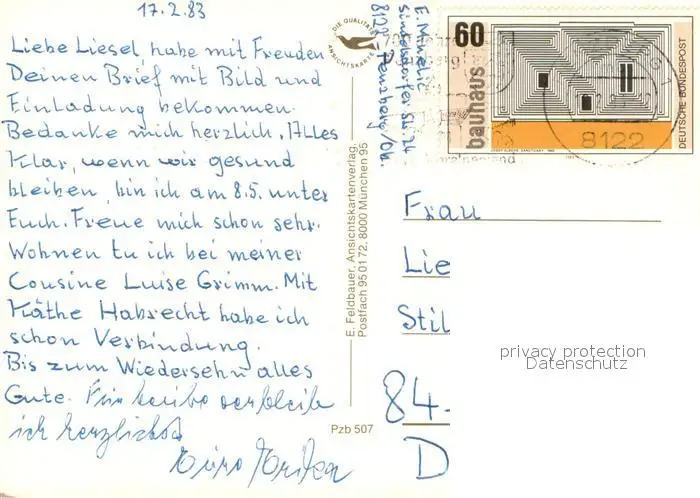 17.2.83
Liebe Liesel, habe mit Freuden
Deinen Brief mit Bild und
Einladung bekommen.
Bedanke mich herzlich. Alles
klar, wenn wir gesund
bleiben, bin ich am 8.5. unter
Euch. Freue mich schon sehr.
Wohnen tu ich bei meiner
Cousine Luise Grimm. Mit
Käthe Habrecht habe ich
schon Verbindung.
Bis zum Wiedersehn alles
Gute.
ich herzlichst
DIE QUALITÄTS
ANSICHTSKARTE
E. Feldbauer, Ansichtskartenverlag,
Postfach 95 01 72, 8000 München 95
Pzb 507
E.
Str. 24
8122 Penzberg/Obb.
60
bauhaus
DEUTSCHE BUNDESPOST
8122
Frau
Lie
Stil
84.
D
privacy protection
Datenschutz